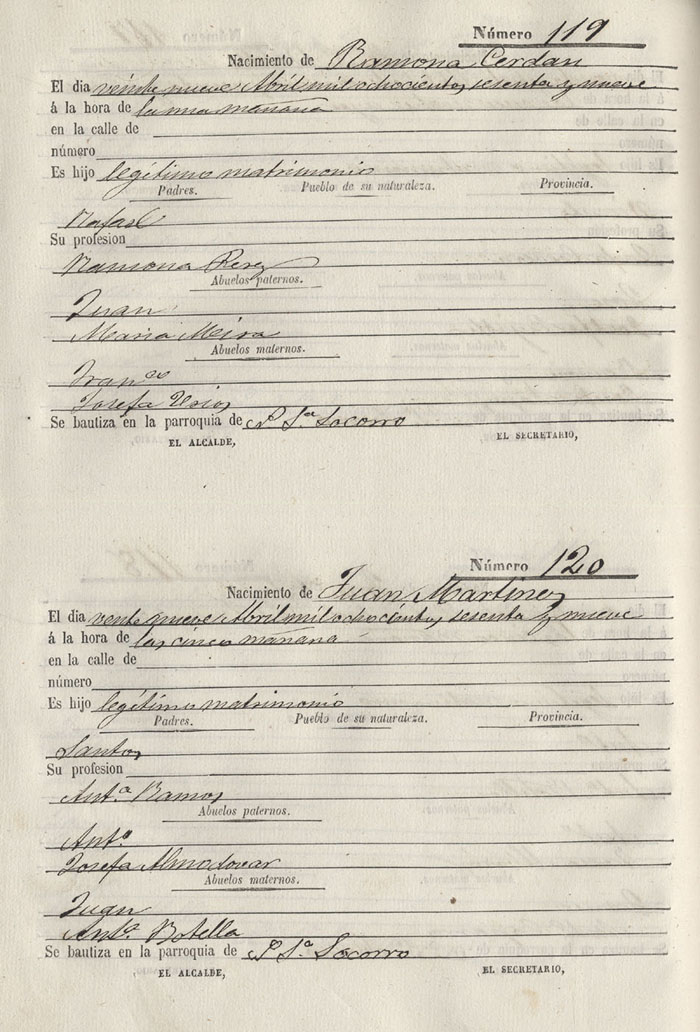 Número 119
Nacimiento de Ramona Cerdan
El dia veinte nueve Abril mil ochocientos sesenta y nueve
á la hora de la una mañana
en la calle de
número
Es hijo legítimo matrimonio
Padres. Pueblo de su naturaleza. Provincia.
Rafael
Su profesion
Ramona Perez
Abuelos paternos.
Juan
Maria Meira
Abuelos maternos.
Franco
Josefa Urios
Se bautiza en la parroquia de N Sa Socorro
EL ALCALDE, EL SECRETARIO,
Número 120
Nacimiento de Juan Martinez
El dia vente nueve Abril mil ochocientos sesenta y nueve
á la hora de las cinco mañana
en la calle de
número
Es hijo legítimo matrimonio
Padres. Pueblo de su naturaleza. Provincia.
Santos
Su profesion
Anta Ramos
Abuelos paternos.
Anto
Josefa Almodovar
Abuelos maternos.
Juan
Anta Botella
Se bautiza en la parroquia de N Sa Socorro
EL ALCALDE, EL SECRETARIO,